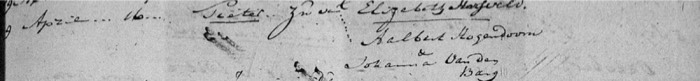 9 April ... 16 ... Pieter. Zn van Elizabeth Harsveld.
Aalbert Hogendoorn
&
Johanna Van den
Barg